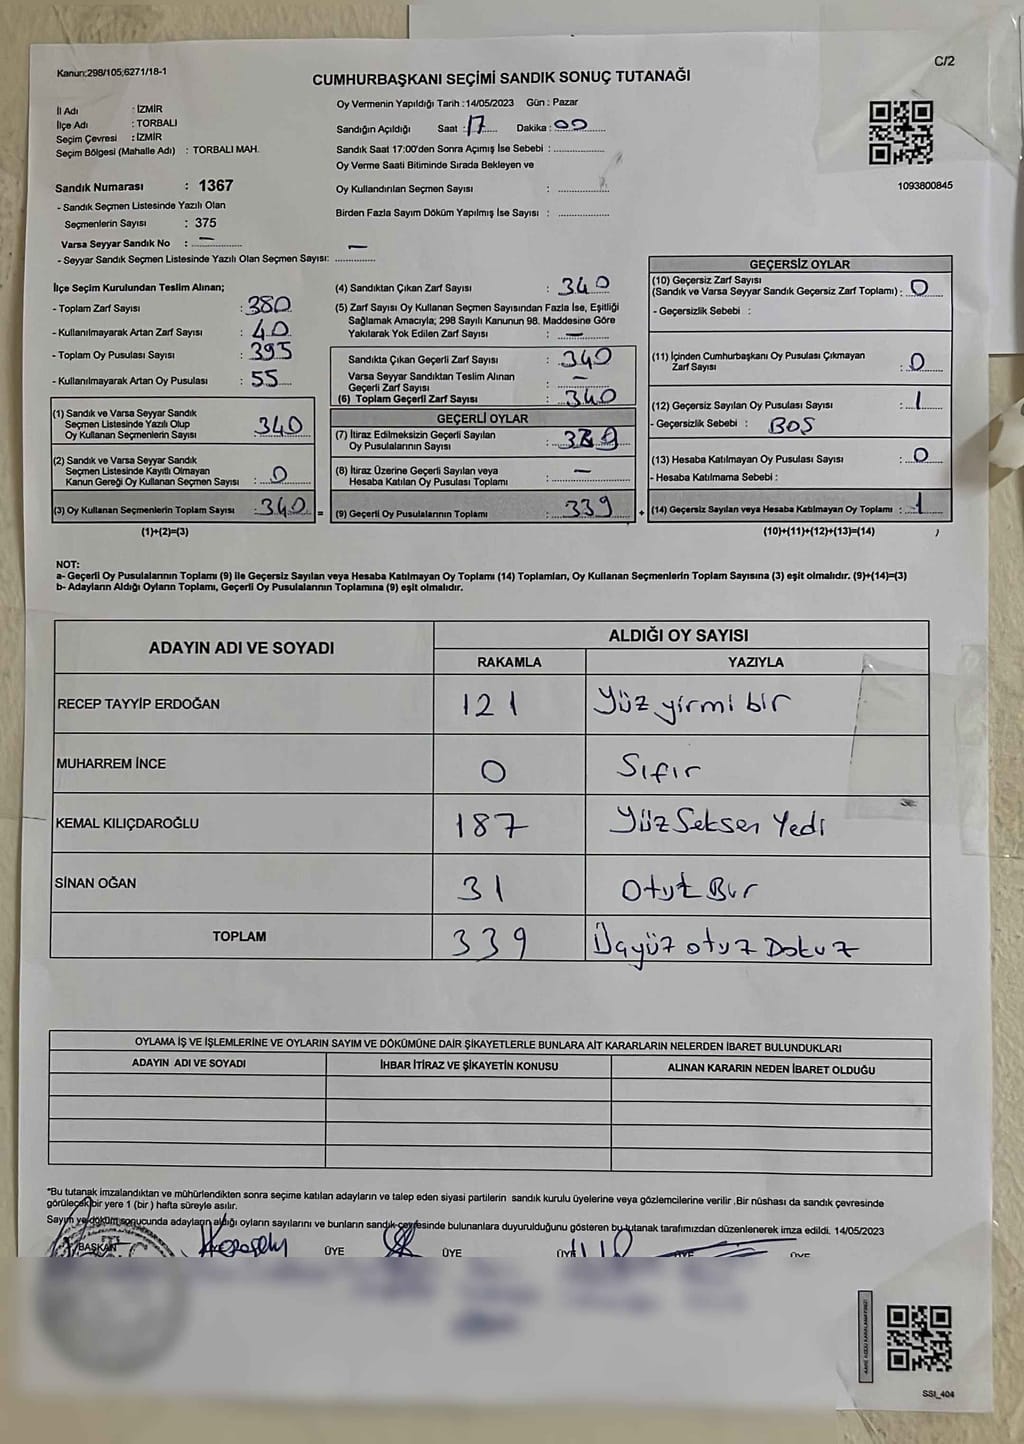 Kanun:298/105;6271/18-1
C/2
CUMHURBAŞKANI SEÇİMİ SANDIK SONUÇ TUTANAĞI
İl Adı : İZMİR
İlçe Adı : TORBALI
Seçim Çevresi : İZMİR
Seçim Bölgesi (Mahalle Adı) : TORBALI MAH.
Sandık Numarası : 1367
- Sandık Seçmen Listesinde Yazılı Olan
Seçmenlerin Sayısı : 375
Varsa Seyyar Sandık No : —
- Seyyar Sandık Seçmen Listesinde Yazılı Olan Seçmen Sayısı: —
Oy Vermenin Yapıldığı Tarih : 14/05/2023 Gün : Pazar
Sandığın Açıldığı Saat : 17 Dakika : 00
Sandık Saat 17:00'den Sonra Açımış İse Sebebi :
Oy Verme Saati Bitiminde Sırada Bekleyen ve
Oy Kullandırılan Seçmen Sayısı :
Birden Fazla Sayım Döküm Yapılmış İse Sayısı :
1093800845
İlçe Seçim Kurulundan Teslim Alınan;
- Toplam Zarf Sayısı : 380
- Kullanılmayarak Artan Zarf Sayısı : 40
- Toplam Oy Pusulası Sayısı : 395
- Kullanılmayarak Artan Oy Pusulası : 55
(1) Sandık ve Varsa Seyyar Sandık
Seçmen Listesinde Yazılı Olup
Oy Kullanan Seçmenlerin Sayısı 340
(2) Sandık ve Varsa Seyyar Sandık
Seçmen Listesinde Kayıtlı Olmayan
Kanun Gereği Oy Kullanan Seçmen Sayısı : 0
(3) Oy Kullanan Seçmenlerin Toplam Sayısı : 340 =
(1)+(2)=(3)
(4) Sandıktan Çıkan Zarf Sayısı : 340
(5) Zarf Sayısı Oy Kullanan Seçmen Sayısından Fazla İse, Eşitliği
Sağlamak Amacıyla; 298 Sayılı Kanunun 98. Maddesine Göre
Yakılarak Yok Edilen Zarf Sayısı : —
Sandıkta Çıkan Geçerli Zarf Sayısı : 340
Varsa Seyyar Sandıktan Teslim Alınan
Geçerli Zarf Sayısı : —
(6) Toplam Geçerli Zarf Sayısı : 340
GEÇERLİ OYLAR
(7) İtiraz Edilmeksizin Geçerli Sayılan
Oy Pusulalarının Sayısı :
(8) İtiraz Üzerine Geçerli Sayılan veya
Hesaba Katılan Oy Pusulası Toplamı : —
(9) Geçerli Oy Pusulalarının Toplamı : 339 +
GEÇERSİZ OYLAR
(10) Geçersiz Zarf Sayısı
(Sandık ve Varsa Seyyar Sandık Geçersiz Zarf Toplamı) : 0
- Geçersizlik Sebebi :
(11) İçinden Cumhurbaşkanı Oy Pusulası Çıkmayan
Zarf Sayısı : 0
(12) Geçersiz Sayılan Oy Pusulası Sayısı : 1
- Geçersizlik Sebebi : BOŞ
(13) Hesaba Katılmayan Oy Pusulası Sayısı : 0
- Hesaba Katılmama Sebebi :
(14) Geçersiz Sayılan veya Hesaba Katılmayan Oy Toplamı : 1
(10)+(11)+(12)+(13)=(14)
NOT:
a- Geçerli Oy Pusulalarının Toplamı (9) ile Geçersiz Sayılan veya Hesaba Katılmayan Oy Toplamı (14) Toplamları, Oy Kullanan Seçmenlerin Toplam Sayısına (3) eşit olmalıdır. (9)+(14)=(3)
b- Adayların Aldığı Oyların Toplamı, Geçerli Oy Pusulalarının Toplamına (9) eşit olmalıdır.
ADAYIN ADI VE SOYADI
ALDIĞI OY SAYISI
RAKAMLA YAZIYLA
RECEP TAYYİP ERDOĞAN 121 Yüz yirmi bir
MUHARREM İNCE 0 Sıfır
KEMAL KILIÇDAROĞLU 187 Yüz Seksen Yedi
SİNAN OĞAN 31 Otuz Bir
TOPLAM 339 Üçyüz otuz Dokuz
OYLAMA İŞ VE İŞLEMLERİNE VE OYLARIN SAYIM VE DÖKÜMÜNE DAİR ŞİKAYETLERLE BUNLARA AİT KARARLARIN NELERDEN İBARET BULUNDUKLARI
ADAYIN ADI VE SOYADI İHBAR İTİRAZ VE ŞİKAYETİN KONUSU ALINAN KARARIN NEDEN İBARET OLDUĞU
*Bu tutanak imzalandıktan ve mühürlendikten sonra seçime katılan adayların ve talep eden siyasi partilerin sandık kurulu üyelerine veya gözlemcilerine verilir .Bir nüshası da sandık çevresinde
görülecek bir yere 1 (bir ) hafta süreyle asılır.
Sayım ve döküm sonucunda adayların aldığı oyların sayılarını ve bunların sandık çevresinde bulunanlara duyurulduğunu gösteren bu tutanak tarafımızdan düzenlenerek imza edildi. 14/05/2023
BAŞKAN ÜYE ÜYE ÜYE ÜYE ÜYE
SSI_404